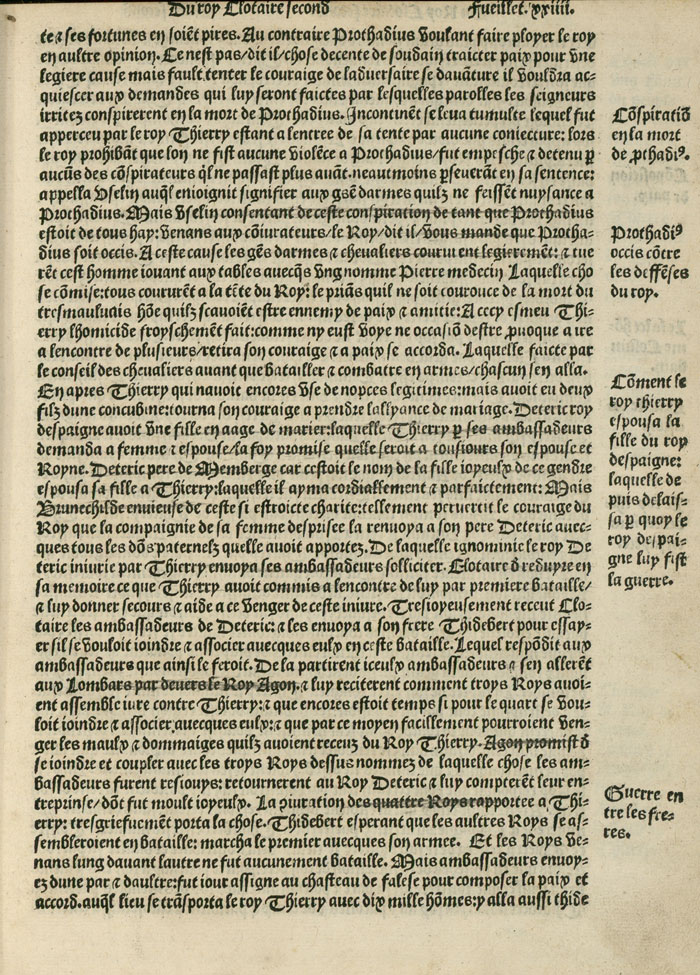 Du roy Clotaire second Fueillet. xxiiii.
te & ses fortunes en soiēt pires. Au contraire Prothadius voulant faire ployer le roy
en aultre opinion. Ce nest pas/dit il/chose decente de soudain traicter paix pour vne
legiere cause mais fault tenter le couraige de laduersaire se dauāture il vouldra ac⸗
quiescer aux demandes qui luy seront faictes par lesquelles parolles les seigneurs
irritez conspirerent en la mort de Prothadius. Incontinēt se leua tumulte lequel fut
apperceu par le roy Thierry estant a lentree de sa tente par aucune coniecture: lors
le roy prohibāt que lon ne fist aucune violēce a Prothadius/fut empesche & detenu ꝑ
aucūs des cōspirateurs ql̄ ne passast plus auāt. neautmoins ꝑseuerāt en sa sentence:
appella Vselin auql̄ enioignit signifier aux gsē darmes quilz ne feissēt nuysance a
Prothadius. Mais Vselin consentant de ceste conspiration de tant que Prothadius
estoit de tous hay: venans aux cōiurateurs/le Roy/dit il/vous mande que Protha⸗
dius soit occis. A ceste cause les gēs darmes & cheualiers coururent legierement: & tue
rēt cest homme iouant aux tables auecq̄s vng nomme Pierre medecin Laquelle cho
se cōmise: tous coururēt a la tēte du Roy: le priās quil ne soit courouce de la mort du
tresmauluais hōe quilz scauoiēt estre ennemy de paix & amitie: A cecy esmeu Thi⸗
erry lhomicide froyschemēt fait: comme ny eust voye ne occasiō destre ꝓuoque a ire
a lencontre de plusieurs/retira son couraige & a paix se accorda. Laquelle faicte par
le conseil des cheualiers auant que batailler & combatre en armes/chascun sen alla.
En apres Thierry qui nauoit encores vse de nopces legitimes: mais auoit eu deux
filz dune concubine: tourna son couraige a prendre lallyance de mariage. Deteric roy
despaigne auoit vne fille en aage de marier: laquelle Thierry ꝑ ses ambassadeurs
demanda a femme & espouse/la foy promise quelle seroit a tousiours son espouse et
Royne. Deteric pere de Memberge car cestoit le nom de la fille ioyeulx de ce gendre
espousa sa fille a Thierry: laquelle il ayma cordiallement & parfaictement: Mais
Brunechilde enuieuse de ceste si estroicte charite: tellement peruertit le couraige du
Roy que la compaignie de sa femme desprisee la renuoya a son pere Deteric auec⸗
ques tous les dōs paternelz quelle auoit apportez. De laquelle ignominie le roy De
teric iniurie par Thierry enuoya ses ambassadeurs solliciter. Clotaire đ reduyre en
sa memoire ce que Thierry auoit commis a lencontre de luy par premiere bataille/
& luy donner secours & aide a ce venger de ceste iniure. Tresioyeusement receut Clo⸗
taire les ambassadeurs de Deteric: & les enuoya a son frere Thidebert pour essay⸗
er sil se vouloit ioindre & associer auecques eulx en ceste bataille. Lequel respōdit aux
ambassadeurs que ainsi le feroit. De la partirent iceulx ambassadeurs & sen allerēt
aux Lombars par deuers le Roy Agon. & luy reciterent comment troys Roys auoi⸗
ent assemble iure contre Thierry: & que encores estoit temps si pour le quart se vou⸗
loit ioindre & associer auecques eulx: & que par ce moyen facillement pourroient ven⸗
ger les maulx & dommaiges quilz auoient receuz du Roy Thierry. Agon promist đ
se ioindre et coupler auec les troys Roys dessus nommez de laquelle chose les am⸗
bassadeurs furent resiouys: retournerent au Roy Deteric & luy compterēt leur en⸗
treprinse/dōt fut moult ioyeulx. La ꝯiuration des quattre Roys rapportee a Thi⸗
erry: tresgriefuemēt porta la chose. Thidebert esperant que les aultres Roys se as⸗
sembleroient en bataille: marcha le premier auecques son armee. Et les Roys ve⸗
nans lung dauant lautre ne fut aucunement bataille. Mais ambassadeurs enuoy⸗
ez dune par & daultre: fut iour assigne au chasteau de falese pour composer la paix et
accord. auql̄ lieu se trāsporta le roy Thierry auec dix mille hōmes: y alla aussi thide
Cōspiratiō
en la mort
de ꝓthadiꝰ.
Prothadiꝰ
occis cōtre
les deffēses
du roy.
Cōment le
roy thierry
espousa la
fille du roy
despaigne:
laquelle de
puis delais⸗
sa ꝑ quoy le
roy despai⸗
gne luy fist
la guerre.
Guerre en
tre les fre⸗
res.